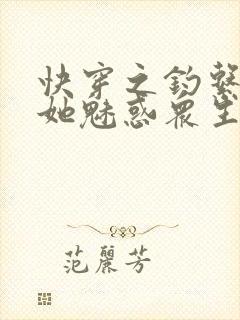 快穿之钓系
她魅惑眾生
范麗芳